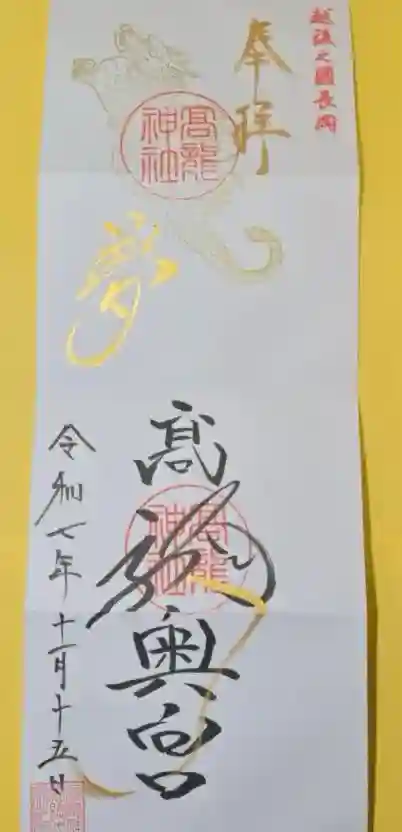 越後之國長岡
奉拝
髙龍
神社
夢
髙龍奥宮
髙龍
神社
令和七年十一月十五日